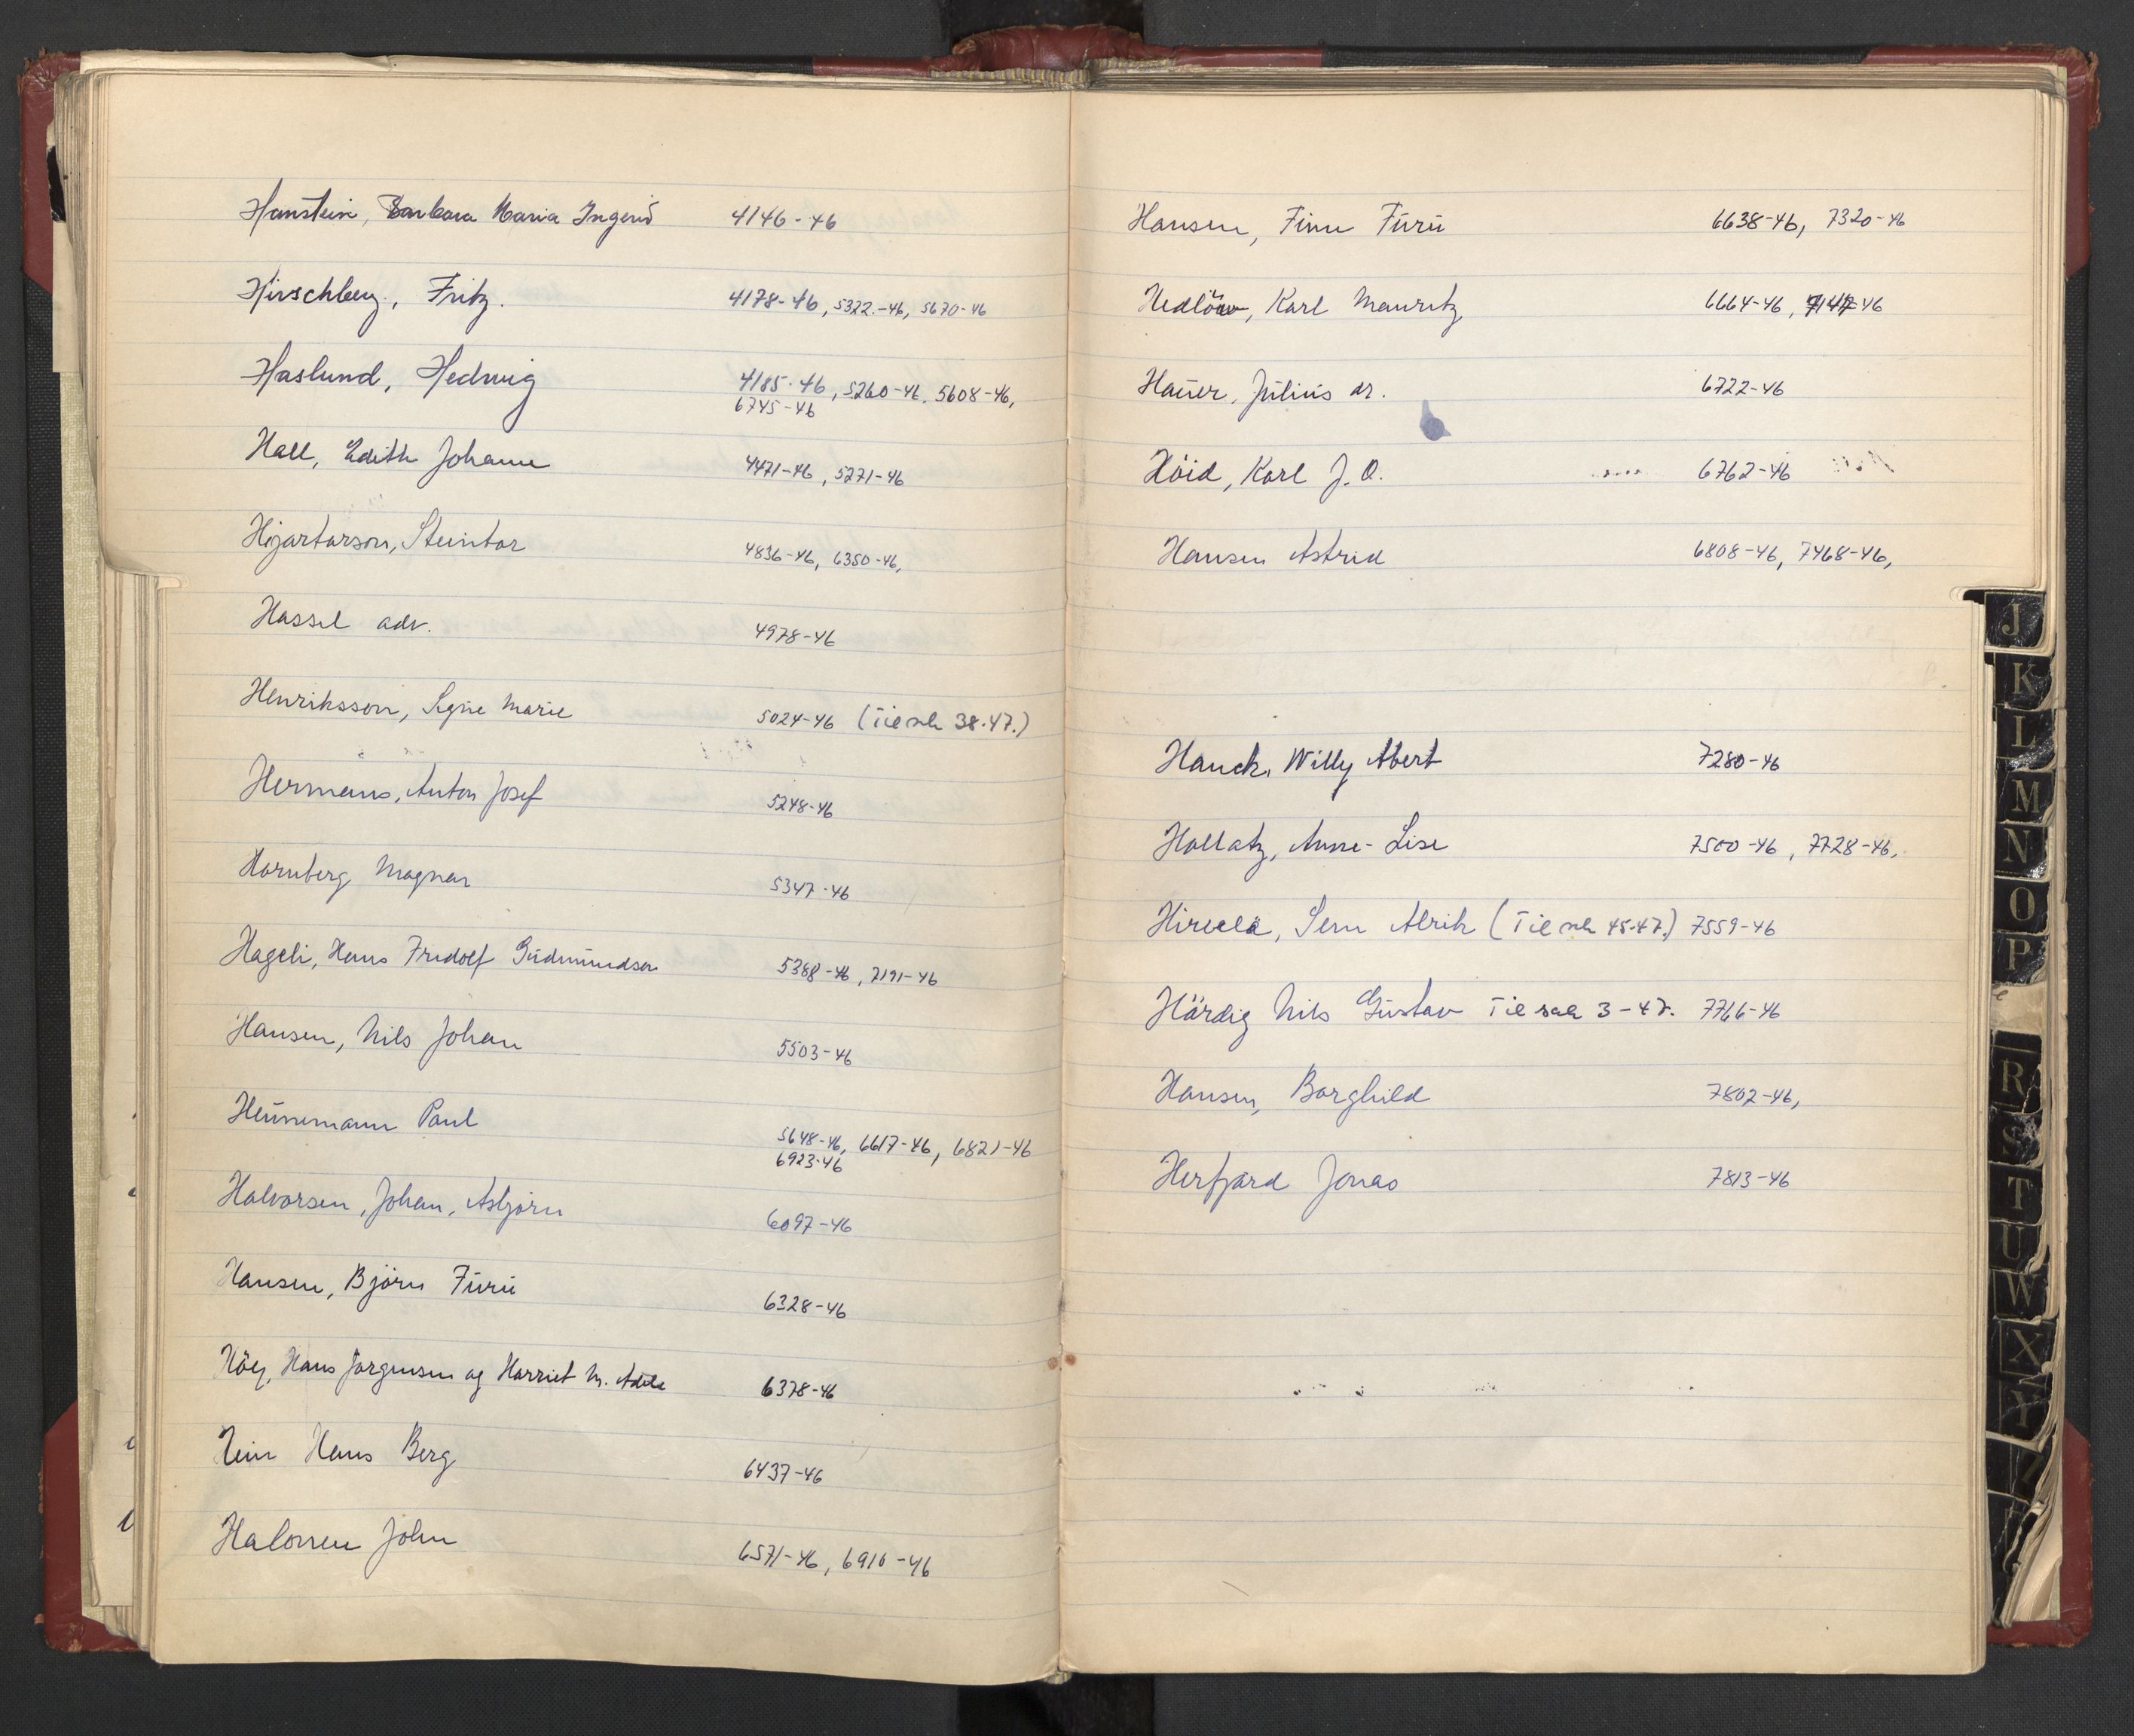 Hanstein, Barbara Maria Ingerid 4146-46
Hirschberg, Fritz. 4178-46, 5322.-46, 5670-46
Haslund, Hedwig 4185-46, 5260-46, 5608-46,
6745-46
Hall, Edith Johanne 4471-46, 5271-46
Hijartarson, Steintor 4836-46, 6350-46,
Hassel adv. 4978-46
Henriksson, Signe Marie 5024-46 (Til sak 38.47.)
Hermans, Anton Josef 5248-46
Hornberg Magnar 5347-46
Hageli, Hans Fridolf Gudmundsen 5388-46, 7191-46
Hansen, Nils Johan 5503-46
Heünemann Paul 5648-46, 6617-46, 6821-46
6923-46
Halvorsen, Johan, Asbjørn 6097-46
Hansen, Björn Furu 6328-46
Höeg, Hans Jørgensen og Harriet M. Adele 6378-46
Hein Hans Berg 6437-46
Halonen John 6571-46, 6910-46
Hansen, Finn Furu 6638-46, 7320-46
Hedlöw, Karl Mauritz 6664-46, 7147-46
Hauer, Julius dr. 6722-46
Höid, Karl J.O. 6762-46
Hansen Astrid 6808-46, 7468-46,
Hauck, Willy Abert 7280-46
Hollatz, Anne-Lise 7500-46, 7728-46,
Hirvelä, Sern Alrik (Til sak 45-47.) 7559-46
Härdig Nils Gustav Til sak 3-47. 7766-46
Hansen, Borghild 7802-46,
Herfjord Jonas 7813-46
J
K
L
M
N
O
P
R
S
T
U
W
X
Y
Z